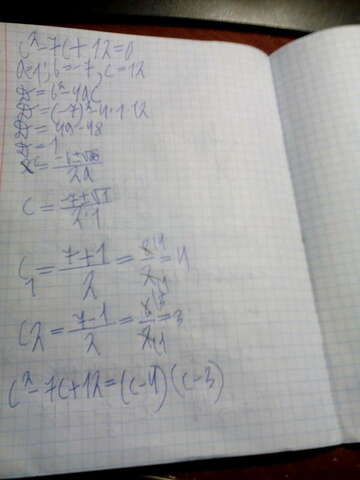 c²-7c+12=0
a=1; b=-7, c=12
D=b²-4ac
D=(-7)²-4·1·12
D=49-48
D=1
c=\frac{-b±√D}{2a}
c=\frac{-7±√1}{2·1}
c₁=\frac{7+1}{2}=\frac{8}{2}=4
c2=\frac{7-1}{2}=\frac{6}{2}=3
c²-7c+12=(c-4)(c-3)